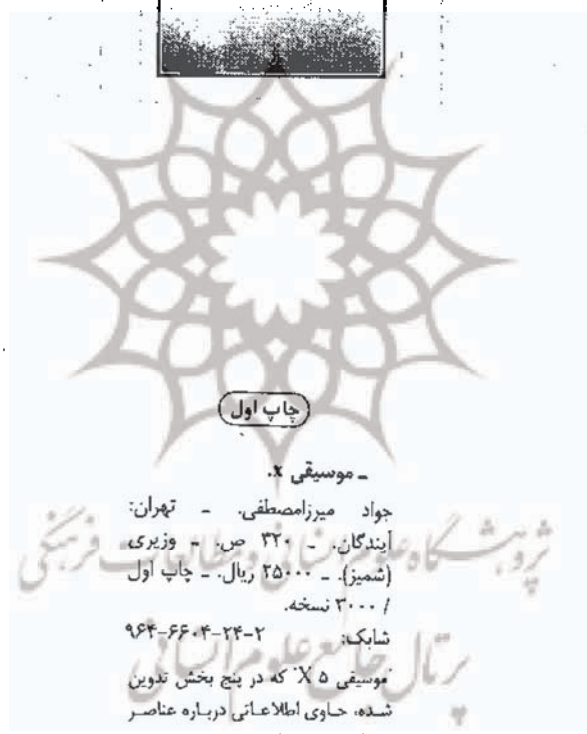 چاپ اول
ـ موسیقی x.
جواد میرزامصطفی. ـ تهران:
آیندگان. ـ ۳۲۰ ص. ـ وزیری
(شمیز). ـ ۲۵۰۰۰ ریال. ـ چاپ اول
/ ۳۰۰۰ نسخه.
شابک: ۹۶۴-۶۶۰۴-۲۴-۲
"موسیقی ۵ X" که در پنج بخش تدوین
شده، حاوی اطلاعاتی درباره عناصر
پژوهشگاه علوم انسانی و مطالعات فرهنگی
پرتال جامع علوم انسانی